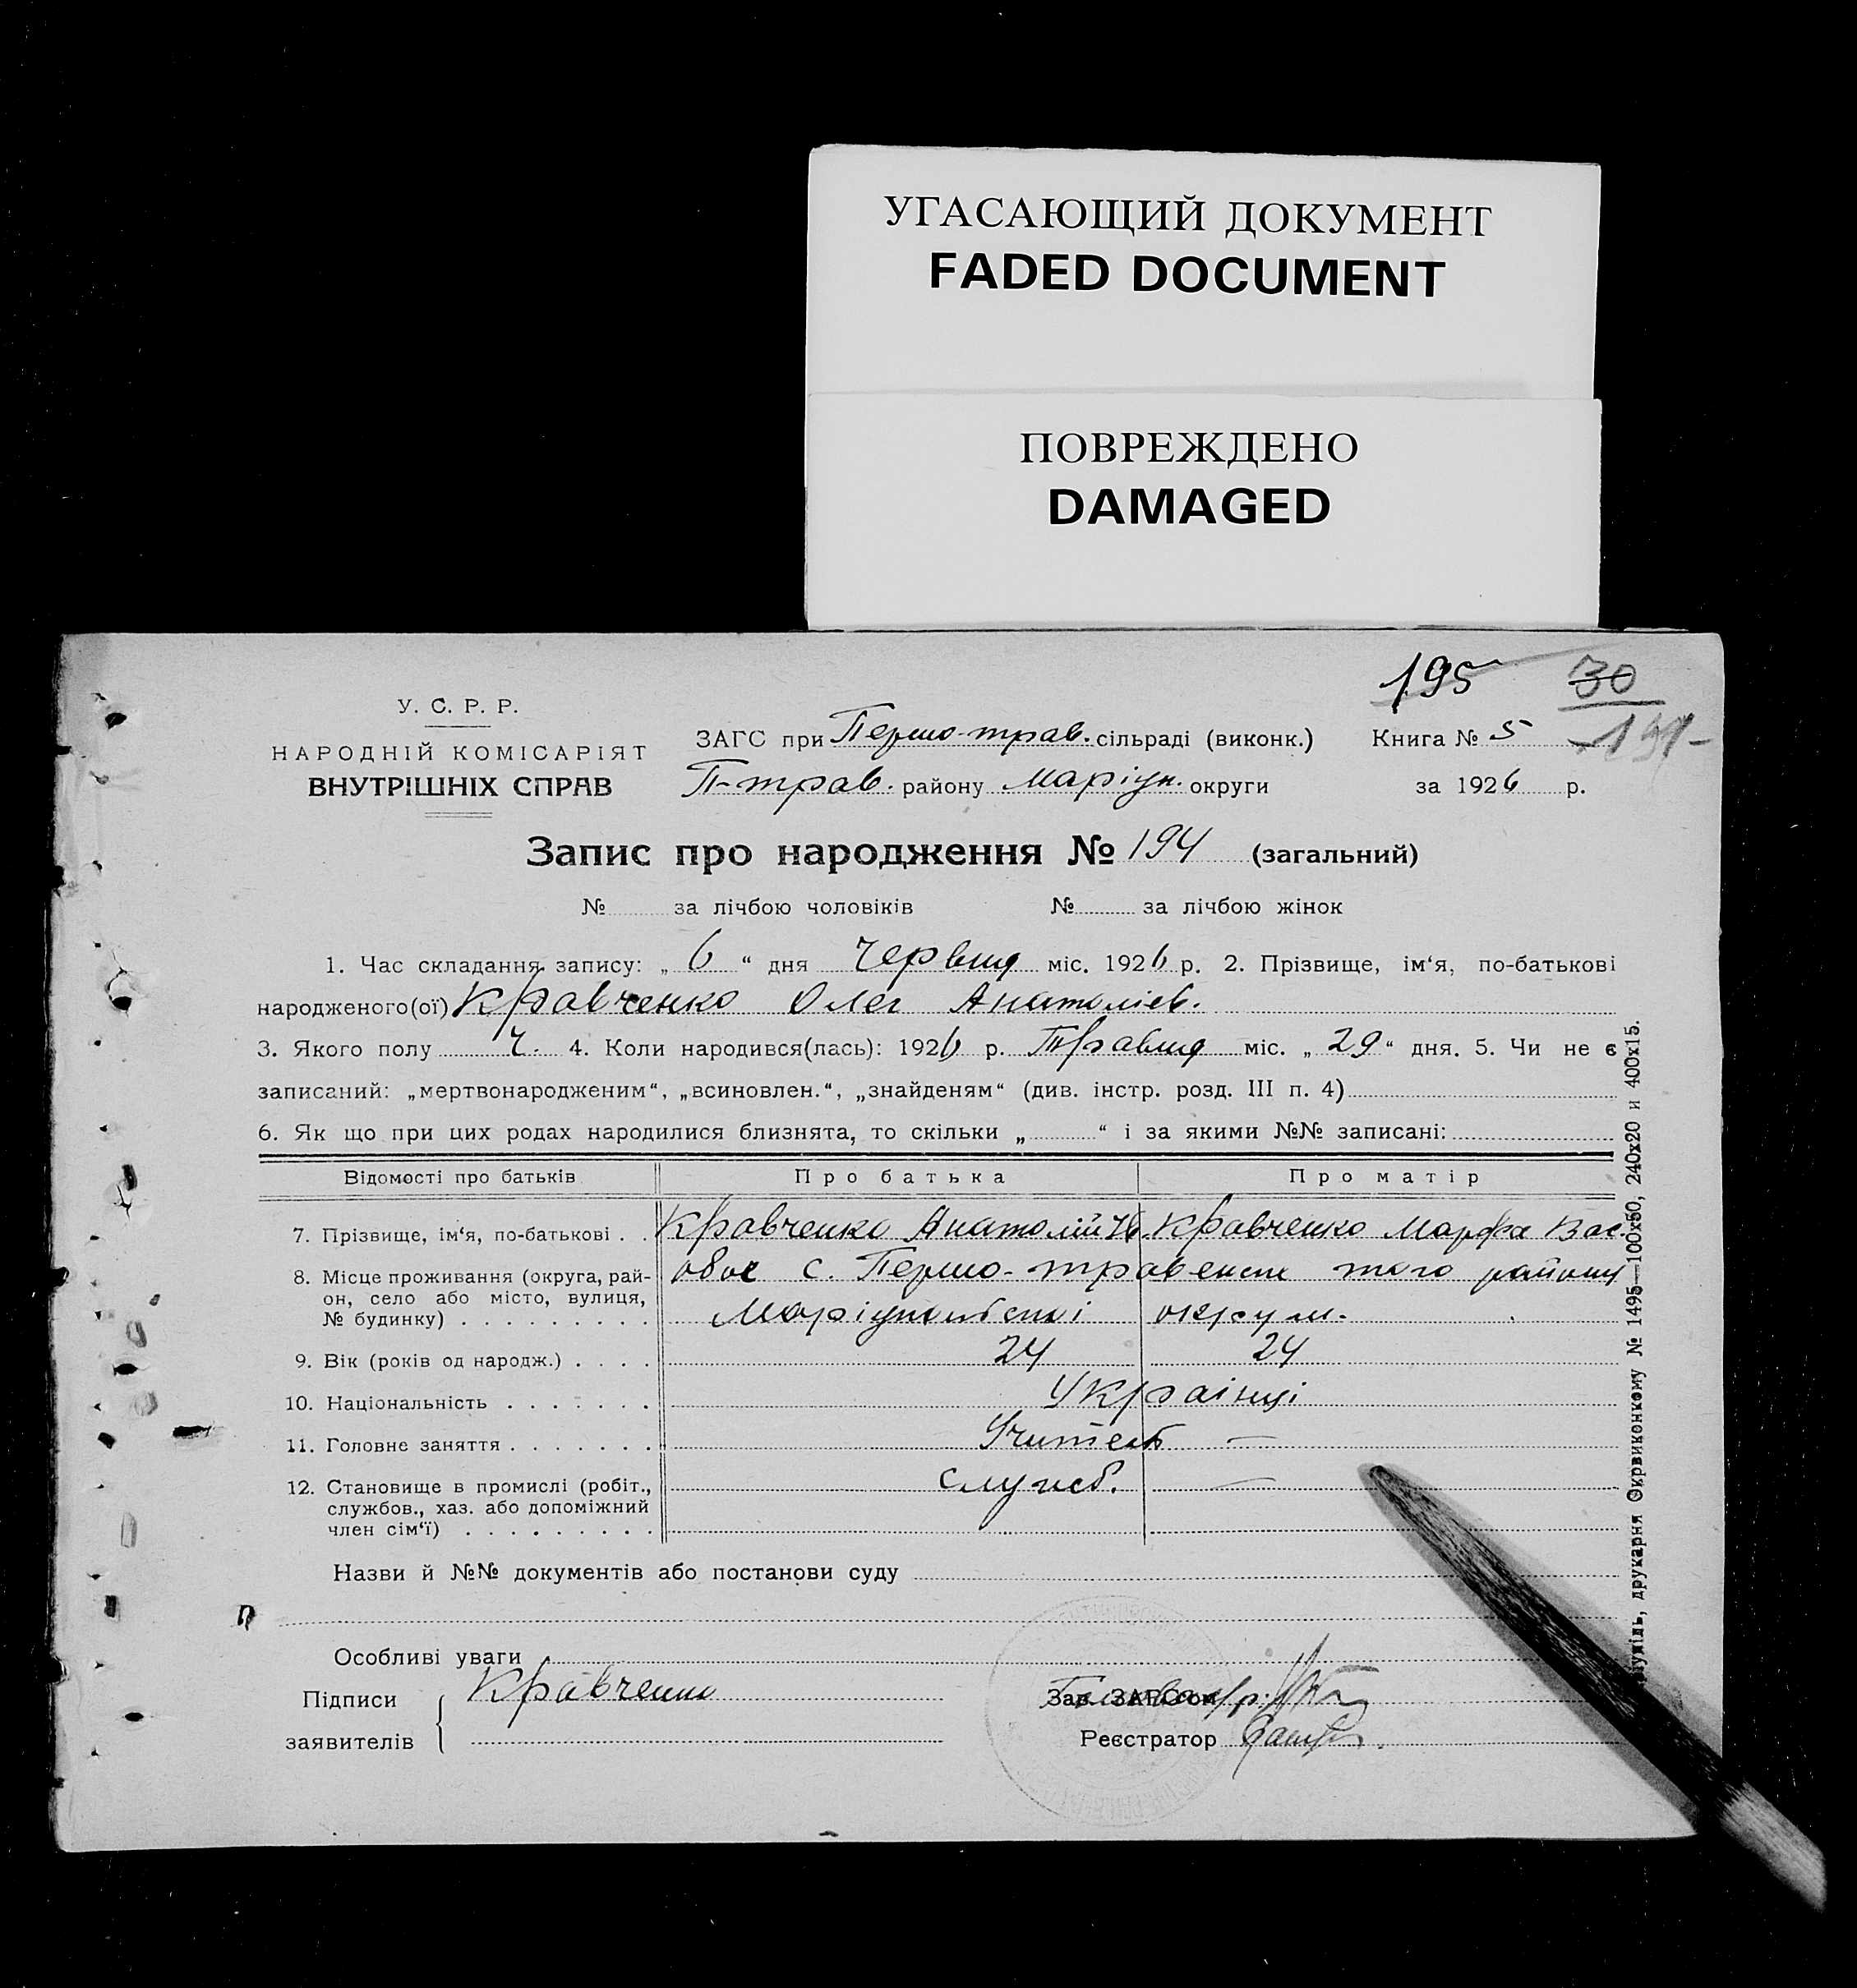 УГАСАЮЩИЙ ДОКУМЕНТ
FADED DOCUMENT
ПОВРЕЖДЕНО
DAMAGED
195 30
У. С. Р. Р.
НАРОДНІЙ КОМІСАРІЯТ
ВНУТРІШНІХ СПРАВ
ЗАГС при Першо-трав. сільраді (виконк.) Книга № 5
П-трав. району Маріуп. округи за 1926 р.
Запис про народження № 194 (загальний)
№ за лічбою чоловіків № за лічбою жінок
1. Час складання запису: „ 6 “ дня Червня міс. 1926 р. 2. Прізвище, ім‘я, по-батькові
народженого(ої) Кравченко Олег Анатоліев.
3. Якого полу Ч. 4. Коли народився(лась): 1926 р. Травня міс. „ 29 “ дня. 5. Чи не є
записаний: „мертвонародженим“, „всиновлен.“, „знайденям“ (див. інстр. розд. III п. 4)
6. Як що при цих родах народилися близнята, то скільки „ “ і за якими №№ записані:
Відомості про батьків Про батька Про матір
7. Прізвище, ім‘я, по-батькові . . Кравченко Анатолій Ів. Кравченко Марфа Вас.
8. Місце проживання (округа, рай-
он, село або місто, вулиця,
№ будинку) . . . . . . . . .
обое с. Першо-травенск того району
Маріупольскоі окрум.
9. Вік (років од народж.) . . . . 24 24
10. Національність . . . . . . . Украінці
11. Головне заняття . . . . . . . Учитель —
12. Становище в промислі (робіт., служб. —
службов., хаз. або допоміжний
член сім‘ї) . . . . . . . . .
Назви й №№ документів або постанови суду
Особливі уваги
Підписи Кравченко Зав. ЗАГС‘ом
заявителів Реєстратор
друкарня Окрвиконкому № 1495—100х50, 240х20 и 400х15.